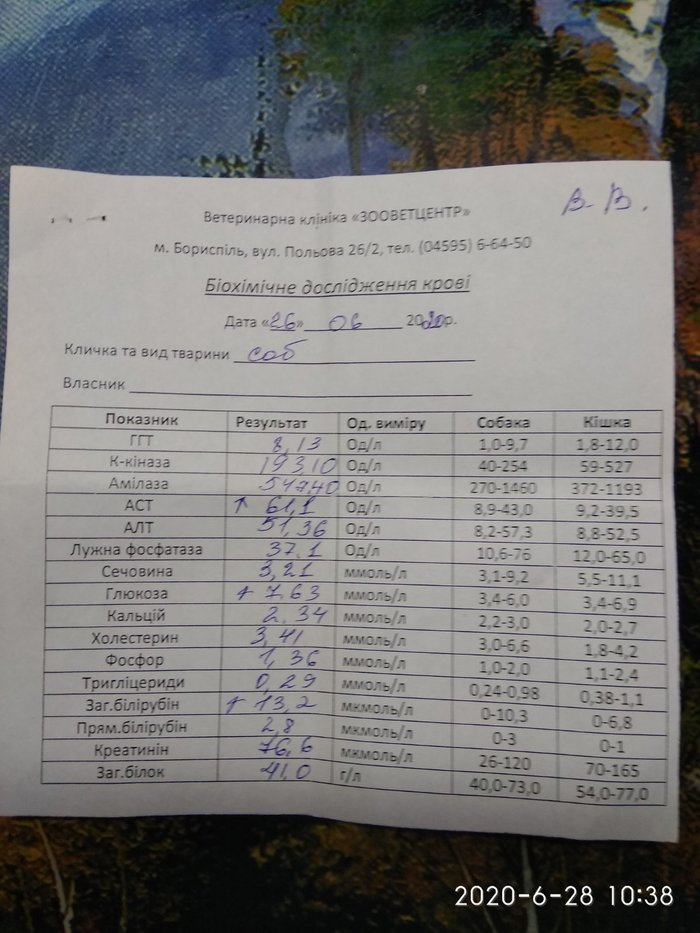 В. В.
Ветеринарна клініка «ЗООВЕТЦЕНТР»
м. Бориспіль, вул. Польова 26/2, тел. (04595) 6-64-50
Біохімічне дослідження крові
Дата «26» 06 2020р.
Кличка та вид тварини соб
Власник
Показник Результат Од. виміру Собака Кішка
ГГТ 8,13 Од/л 1,0-9,7 1,8-12,0
К-кіназа 193,10 Од/л 40-254 59-527
Амілаза 547,40 Од/л 270-1460 372-1193
АСТ ↑ 61,1 Од/л 8,9-43,0 9,2-39,5
АЛТ 51,36 Од/л 8,2-57,3 8,8-52,5
Лужна фосфатаза 37,1 Од/л 10,6-76 12,0-65,0
Сечовина 3,21 ммоль/л 3,1-9,2 5,5-11,1
Глюкоза ↑ 7,63 ммоль/л 3,4-6,0 3,4-6,9
Кальцій 2,34 ммоль/л 2,2-3,0 2,0-2,7
Холестерин 3,41 ммоль/л 3,0-6,6 1,8-4,2
Фосфор 1,36 ммоль/л 1,0-2,0 1,1-2,4
Тригліцериди 0,29 ммоль/л 0,24-0,98 0,38-1,1
Заг.білірубін ↑ 13,2 мкмоль/л 0-10,3 0-6,8
Прям.білірубін 2,8 мкмоль/л 0-3 0-1
Креатинін 76,6 мкмоль/л 26-120 70-165
Заг.білок 41,0 г/л 40,0-73,0 54,0-77,0
2020-6-28 10:38